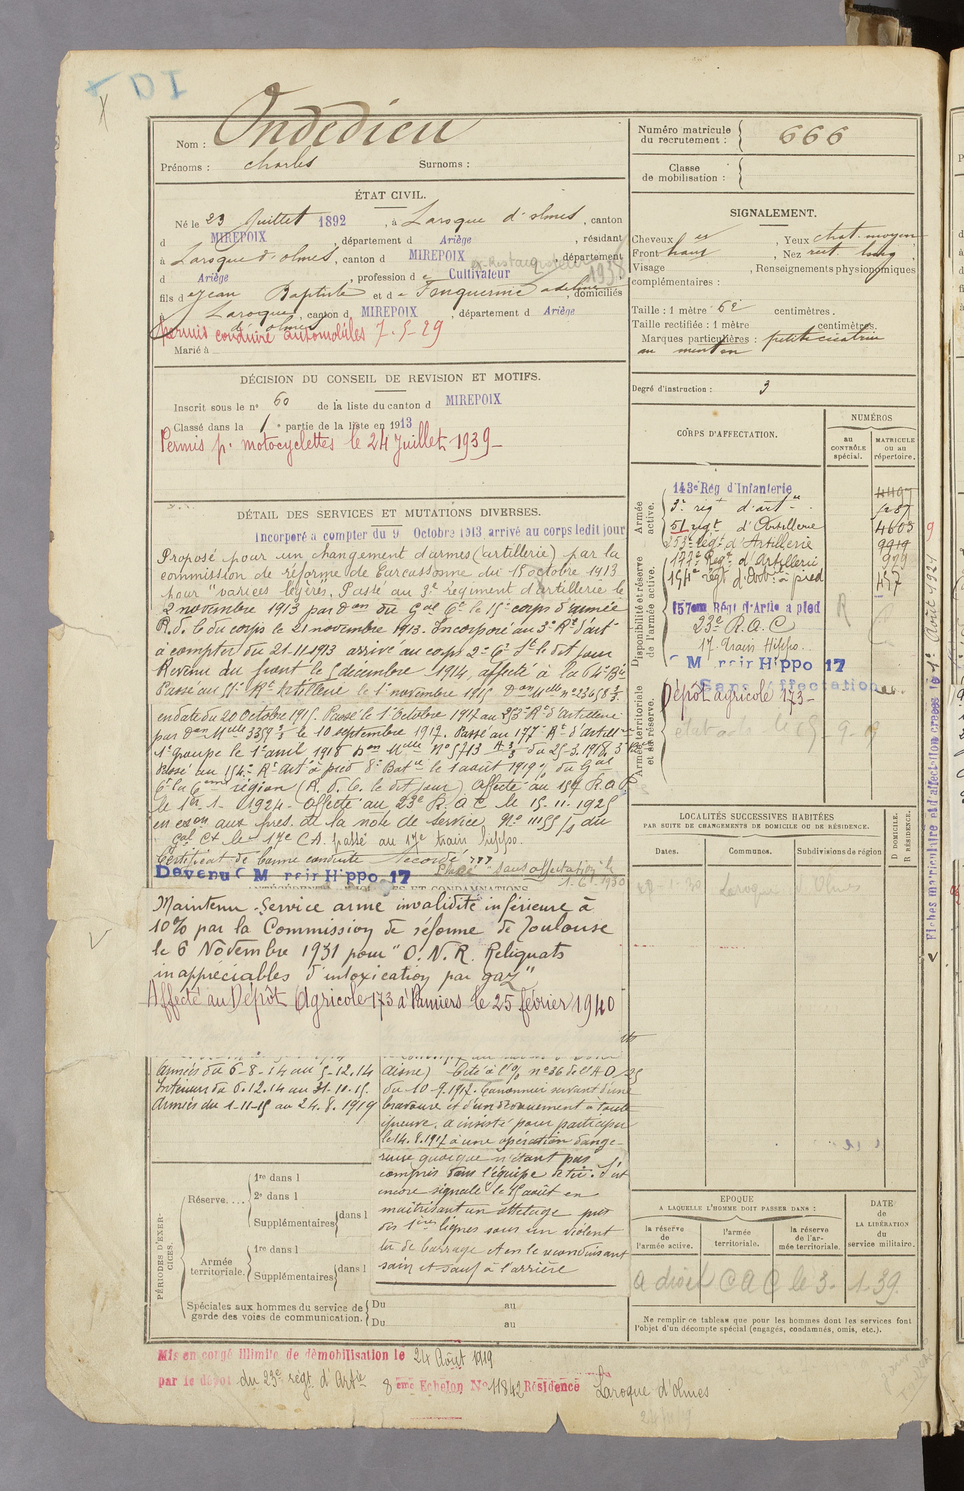 Nom : Ondedieu
Prénoms : Charles Surnoms :
ÉTAT CIVIL.
Né le 23 Juillet 1892, à Laroque d'olmes, canton
d MIREPOIX, département d Ariège, résidant
à Laroque d'olmes, canton d MIREPOIX, département
d Ariège, profession d Cultivateur
1938
fils de Jean Baptiste et de Fonquernie Adeline, domiciliés
Laroque d'olmes, canton d MIREPOIX, département d Ariège
Permis conduire automobiles 7-5-29
Marié à
DÉCISION DU CONSEIL DE REVISION ET MOTIFS.
Inscrit sous le n° 60 de la liste du canton d MIREPOIX
Classé dans la 1e partie de la liste en 1913
Permis pr motocyclettes le 24 Juillet 1939-
DÉTAIL DES SERVICES ET MUTATIONS DIVERSES.
Incorporé à compter du 9 Octobre 1913 arrivé au corps ledit jour
Proposé pour un changement d'armes (artillerie) par la
commission de réforme de Carcassonne du 15 octobre 1913
pour "varices légères. Passé au 3e régiment d'artillerie le
2 novembre 1913 par don du Gal Ct le 15e corps d'armée
R.d.C du corps le 21 novembre 1913. Incorporé au 3e Rt d'art
à compter du 21.11.1913 arrivé au corps
Revenu du front le 5 décembre 1914, affecté à la 64e Bie
Passé au 51e Rt Artillerie le 1er novembre 1915
en date du 20 Octobre 1915. Passé le 1er Octobre 1917 au 253e Rt d'Artillerie
le 10 septembre 1917. Passé au 177e Rt d'artillie
1er groupe le 1er avril 1918
Passé au 154e Rt Art à pied 8e Bat le 1 août 1919
région (R.d.C. le dit jour) Affecté au 157 R.A.P
le 1er-1-1924- Affecté au 23e R.A.C le 15.11.1925
en aux pres. de la note de service No 11155/5 du
Gal Ct le 17e C.A. passé au 17e train hippo.
Certificat de bonne conduite Accordé
Placé sans affectation le
1.6.1930
Devenu C M Hippo 17
Maintenu Service armé invalidité inférieure à
10% par la Commission de réforme de Toulouse
le 6 Novembre 1931 pour "O.N.R. Reliquats
inappréciables d'intoxication par gaz"
Affecté au Dépôt Agricole 173 à Pamiers le 25 février 1940
Armées du 6-8-14 au 5-12.14
Intérieur du 6.12.14 au 31-10-15
Armées du 1-11-15 au 24.8.1919
Aisne) Cité à l'O/ n°36 de l'A D/25
du 10-9.1917. Canonnier servant d'une
bravoure et d'un dévouement à toute
épreuve. a insisté pour participer
le 14.8.1917 à une opération dange-
reuse quoique n'étant pas
compris dans l'équipe de tir. S'est
encore signalé le 15 août en
maîtrisant un attelage pris
des 1ères lignes sous un violent
tir de barrage et en le reconduisant
sain et sauf à l'arrière
PÉRIODES D'EXERCICES.
Réserve.... 1re dans l
2e dans l
Supplémentaires dans l
Armée territoriale. 1re dans l
Supplémentaires dans l
Spéciales aux hommes du service de garde des voies de communication. Du au
Du au
Mis en congé illimité de démobilisation le 24 Août 1919
par le dépôt du 23e régt d'Artie 8eme Echelon No 11842 Résidence Laroque d'Olmes
Numéro matricule du recrutement : 666
Classe de mobilisation :
SIGNALEMENT.
Cheveux , Yeux chat. moyen
Front haut , Nez rect. long
Visage , Renseignements physionomiques
complémentaires :
Taille : 1 mètre 62 centimètres.
Taille rectifiée : 1 mètre centimètres.
Marques particulières : petite cicatrice
au menton
Degré d'instruction : 3
CORPS D'AFFECTATION.
NUMÉROS
au CONTRÔLE spécial.
MATRICULE ou au répertoire.
Armée active.
143e Rég d'Infanterie
3e régt d'artie
51 régt d'Artillerie 4603
253e Régt d'Artillerie 9919
Disponibilité et réserve de l'armée active.
177e Régt d'Artillerie
154e régt d'Artie à pied 437
157em Régt d'Artie à pied
23e R.A.C
17 Train Hippo.
C M Hippo 17
Armée territoriale et sa réserve.
Sans affectation
Dépôt agricole 173-
Fiches matriculaire et d'affectation créées le 1er Août 1924
LOCALITÉS SUCCESSIVES HABITÉES
PAR SUITE DE CHANGEMENTS DE DOMICILE OU DE RÉSIDENCE.
Dates. Communes. Subdivisions de région
D DOMICILE.
R RÉSIDENCE.
Laroque d'Olmes
EPOQUE
A LAQUELLE L'HOMME DOIT PASSER DANS :
la réserve de l'armée active. l'armée territoriale. la réserve de l'armée territoriale.
DATE de LA LIBÉRATION du service militaire.
A droit C A C le 3.1.39.
Ne remplir ce tableau que pour les hommes dont les services font
l'objet d'un décompte spécial (engagés, condamnés, omis, etc.).